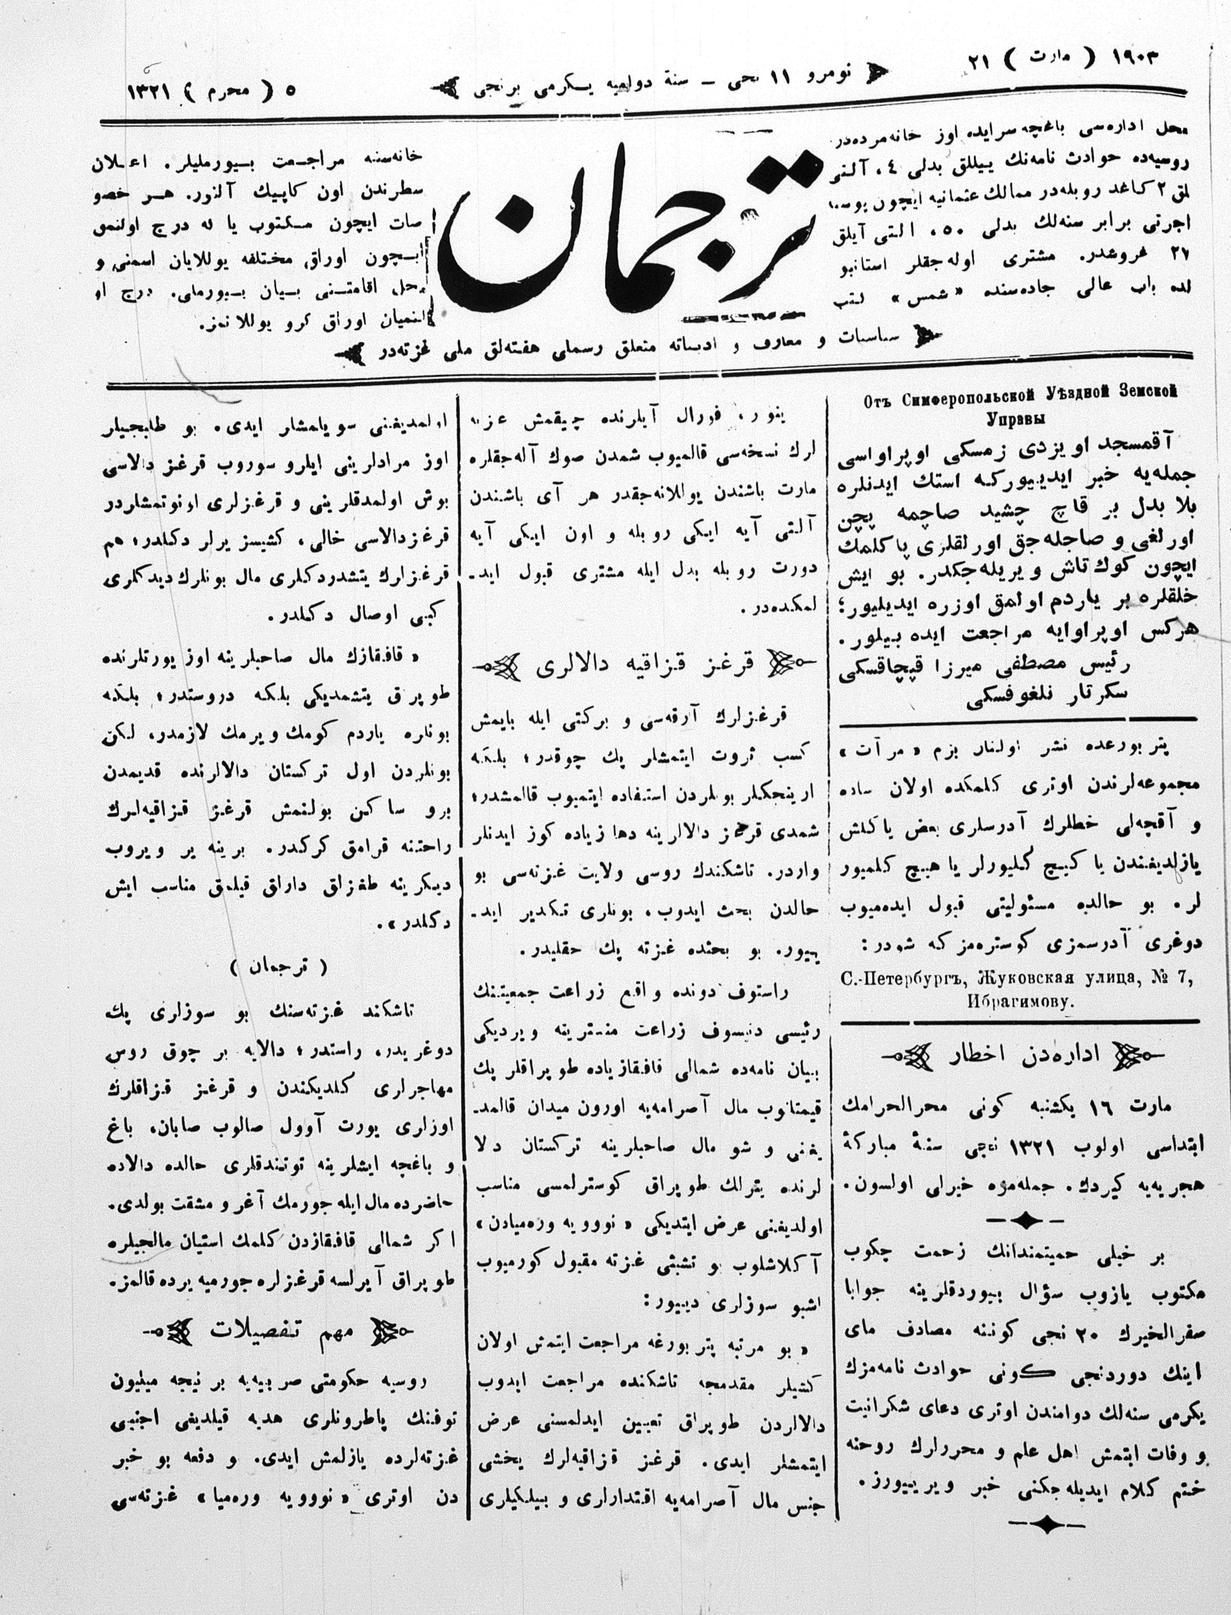 ١٩٠٣ ( مارت ) ٢١
نومرو ١١ نجى – سنۀ دولميه يكرمى برنجى
٥ ( محرم ) ١٣٢١
محل ادارەسى باغچه سرايده اوز خانه مزدەدر.
روسيەده حوادث نامەنك ييللق بدلى ٤، آلتى
لق ٢ كاغد روبلەدر ممالك عثمانيه ايچون پوسته
اجرتى برابر سنەلك بدلى ٥٠، التى آيلق
٢٧ غروشدر. مشترى اولەجقلر استانبو
لده باب عالى جادەسنده «شمس» كتب
ترجمان
خانەسنه مراجعت بيورمليلر. اعلان
سطرندن اون كاپيك آلنور. هر خصو
صات ايچون مكتوب يا كه درج اولنمق
ايچون اوراق مختلفه يوللايان اسمنى و
محل اقامتنى بيان بيورملى. درج او
لنميان اوراق كرو يوللانمز.
سياسيات و معارف و ادبياته متعلق رسملى هفتەلق ملى غزتەدر
Отъ Симферопольской Уѣздной Земской
Управы
آقمسجد اويزدى زمسكى اوپراواسى
جملەيه خبر ايدييوركه استك ايدنلره
بلا بدل بر قاچ چشيد صاچمه پچن
اورلغى و صاجلەجق اورلقلرى پاكلمك
ايچون كوك تاش ويريلەجكدر. بو ايش
خلقلره بر ياردم اولمق اوزره ايديليور؛
هركس اوپراوايه مراجعت ايده بيلور.
رئيس مصطفى ميرزا قپچاقسكى
سكرتار نلغوفسكى
پتربورغده نشر اولنار بزم «مرآت»
مجموعەلرندن اوترى كلمكده اولان ساده
و آقچەلى خطلرك آدرسلرى بعض ياكلش
يازلديغندن يا كيچ كليورلر يا هيچ كلميور
لر. بو حالده مسئوليتى قبول ايدەميوب
دوغرى آدرسمزى كوسترەمز كه شودر:
С.-Петербургъ, Жуковская улица, № 7,
Ибрагимову.
ادارەدن اخطار
مارت ١٦ يكشنبه كونى محرالحرامك
ابتداسى اولوب ١٣٢١ نجى سنۀ مباركۀ
هجريەيه كيردك. جملەمزه خيرلى اولسون.
بر خيلى حميتمندانك زحمت چكوب
مكتوب يازوب سؤال بيوردقلرينه جوابا
صفرالخيرك ٢٠ نجى كوننه مصادف ماى
اينك دوردنجى كونى حوادث نامەمزك
يكرمى سنەلك دوامندن اوترى دعاى شكرانيت
و وفات ايتمش اهل علم و محررلرك روحنه
ختم كلام ايديلەجكنى خبر ويرييورز.
ينور، فورال آيلرنده چيقمش غزته
لرك نسخەسى قالميوب شمدن صوك آلەجقلره
مارت باشندن يوللانەجقدر هر آى باشندن
آلتى آيه ايكى روبله و اون ايكى آيه
دورت روبله بدل ايله مشترى قبول ايد-
لمكدەدر.
قرغز قزاقيه دالالرى
قرغزلرك آرقەسى و بركتى ايله بايمش
كسب ثروت ايتمشلر پك چوقدر؛ بلكه
ارينجكلر بونلردن استفاده ايتميوب قالمشدر؛
شمدى قرغز دالالرينه دها زياده كوز ايدنلر
واردر. تاشكندك روسى ولايت غزتەسى بو
حالدن بحث ايدوب، بونلرى تكدير ايد-
ييور. بو بحثده غزته پك حقليدر.
راستوف دونده واقع زراعت جمعيتنك
رئيسى دنيسوف زراعت منسترينه ويرديكى
بيان نامەده شمالى قافقازياده طوپراقلر پك
قيمتلنوب مال آصرامەيه اورون ميدان قالمد-
يغنى و شو مال صاحبلرينه تركستان دلا
لرنده يترلك طوپراق كوسترلمسى مناسب
اولديغنى عرض ايتديكى «نوويه ورەميادن»
آكلاشلوب بو تشبثى غزته مقبول كورميوب
اشبو سوزلرى دييور:
«بو مرتبه پتربورغه مراجعت ايتمش اولان
كشيلر مقدمجه تاشكنده مراجعت ايدوب
دالالردن طوپراق تعيين ايدلمسنى عرض
ايتمشلر ايدى. قرغز قزاقيەلرك يخشى
جنس مال آصرامەيه اقتدارلرى و بيلكيلرى
اولمديغنى سويلمشلر ايدى. بو طلبجيلر
اوز مرادلرينى ايلرو سوروب قرغز دالاسى
بوش اولمدقلرينى و قرغزلرى اونوتمشلردر
قرغز دالاسى خالى، كشيسز يرلر دكلدر؛ هم
قرغزلرك يتشدردكلرى مال بونلرك ديدكلرى
كبى اوصال دكلدر.
«قافقازك مال صاحبلرينه اوز يورتلرنده
طوپرق يتشمديكى بلكه دروستدر؛ بلكه
بونلره ياردم كومك ويرمك لازمدر، لكن
بونلردن اول تركستان دالالرنده قديمدن
برو ساكن بولنمش قرغز قزاقيەلرك
راحتنه قرامق كركدر. برينه ير ويروب
ديكرينه طغزاق داراق قيلمق مناسب ايش
دكلدر».
( ترجمان )
تاشكند غزتەسنك بو سوزلرى پك
دوغريدر، راستدر؛ دالايه بر چوق روس
مهاجرلرى كلديكندن و قرغز قزاقلرك
اوزلرى يورت آوول صالوب صابان، باغ
و باغچه ايشلرينه توتندقلرى حالده دالاده
حاضرده مال ايله جورمك آغر و مشقت بولدى.
اكر شمالى قافقازدن كلمك استيان مالجيلره
طوپراق آيرلسه قرغزلره جورميه يرده قالمز.
مهم تفصيلات
روسيه حكومتى صربيەيه بر نيجه ميليون
توفنك پاطرونلرى هديه قيلديغى اجنبى
غزتەلرده يازلمش ايدى. و دفعه بو خبر
دن اوترى «نوويه ورەميا» غزتەسى